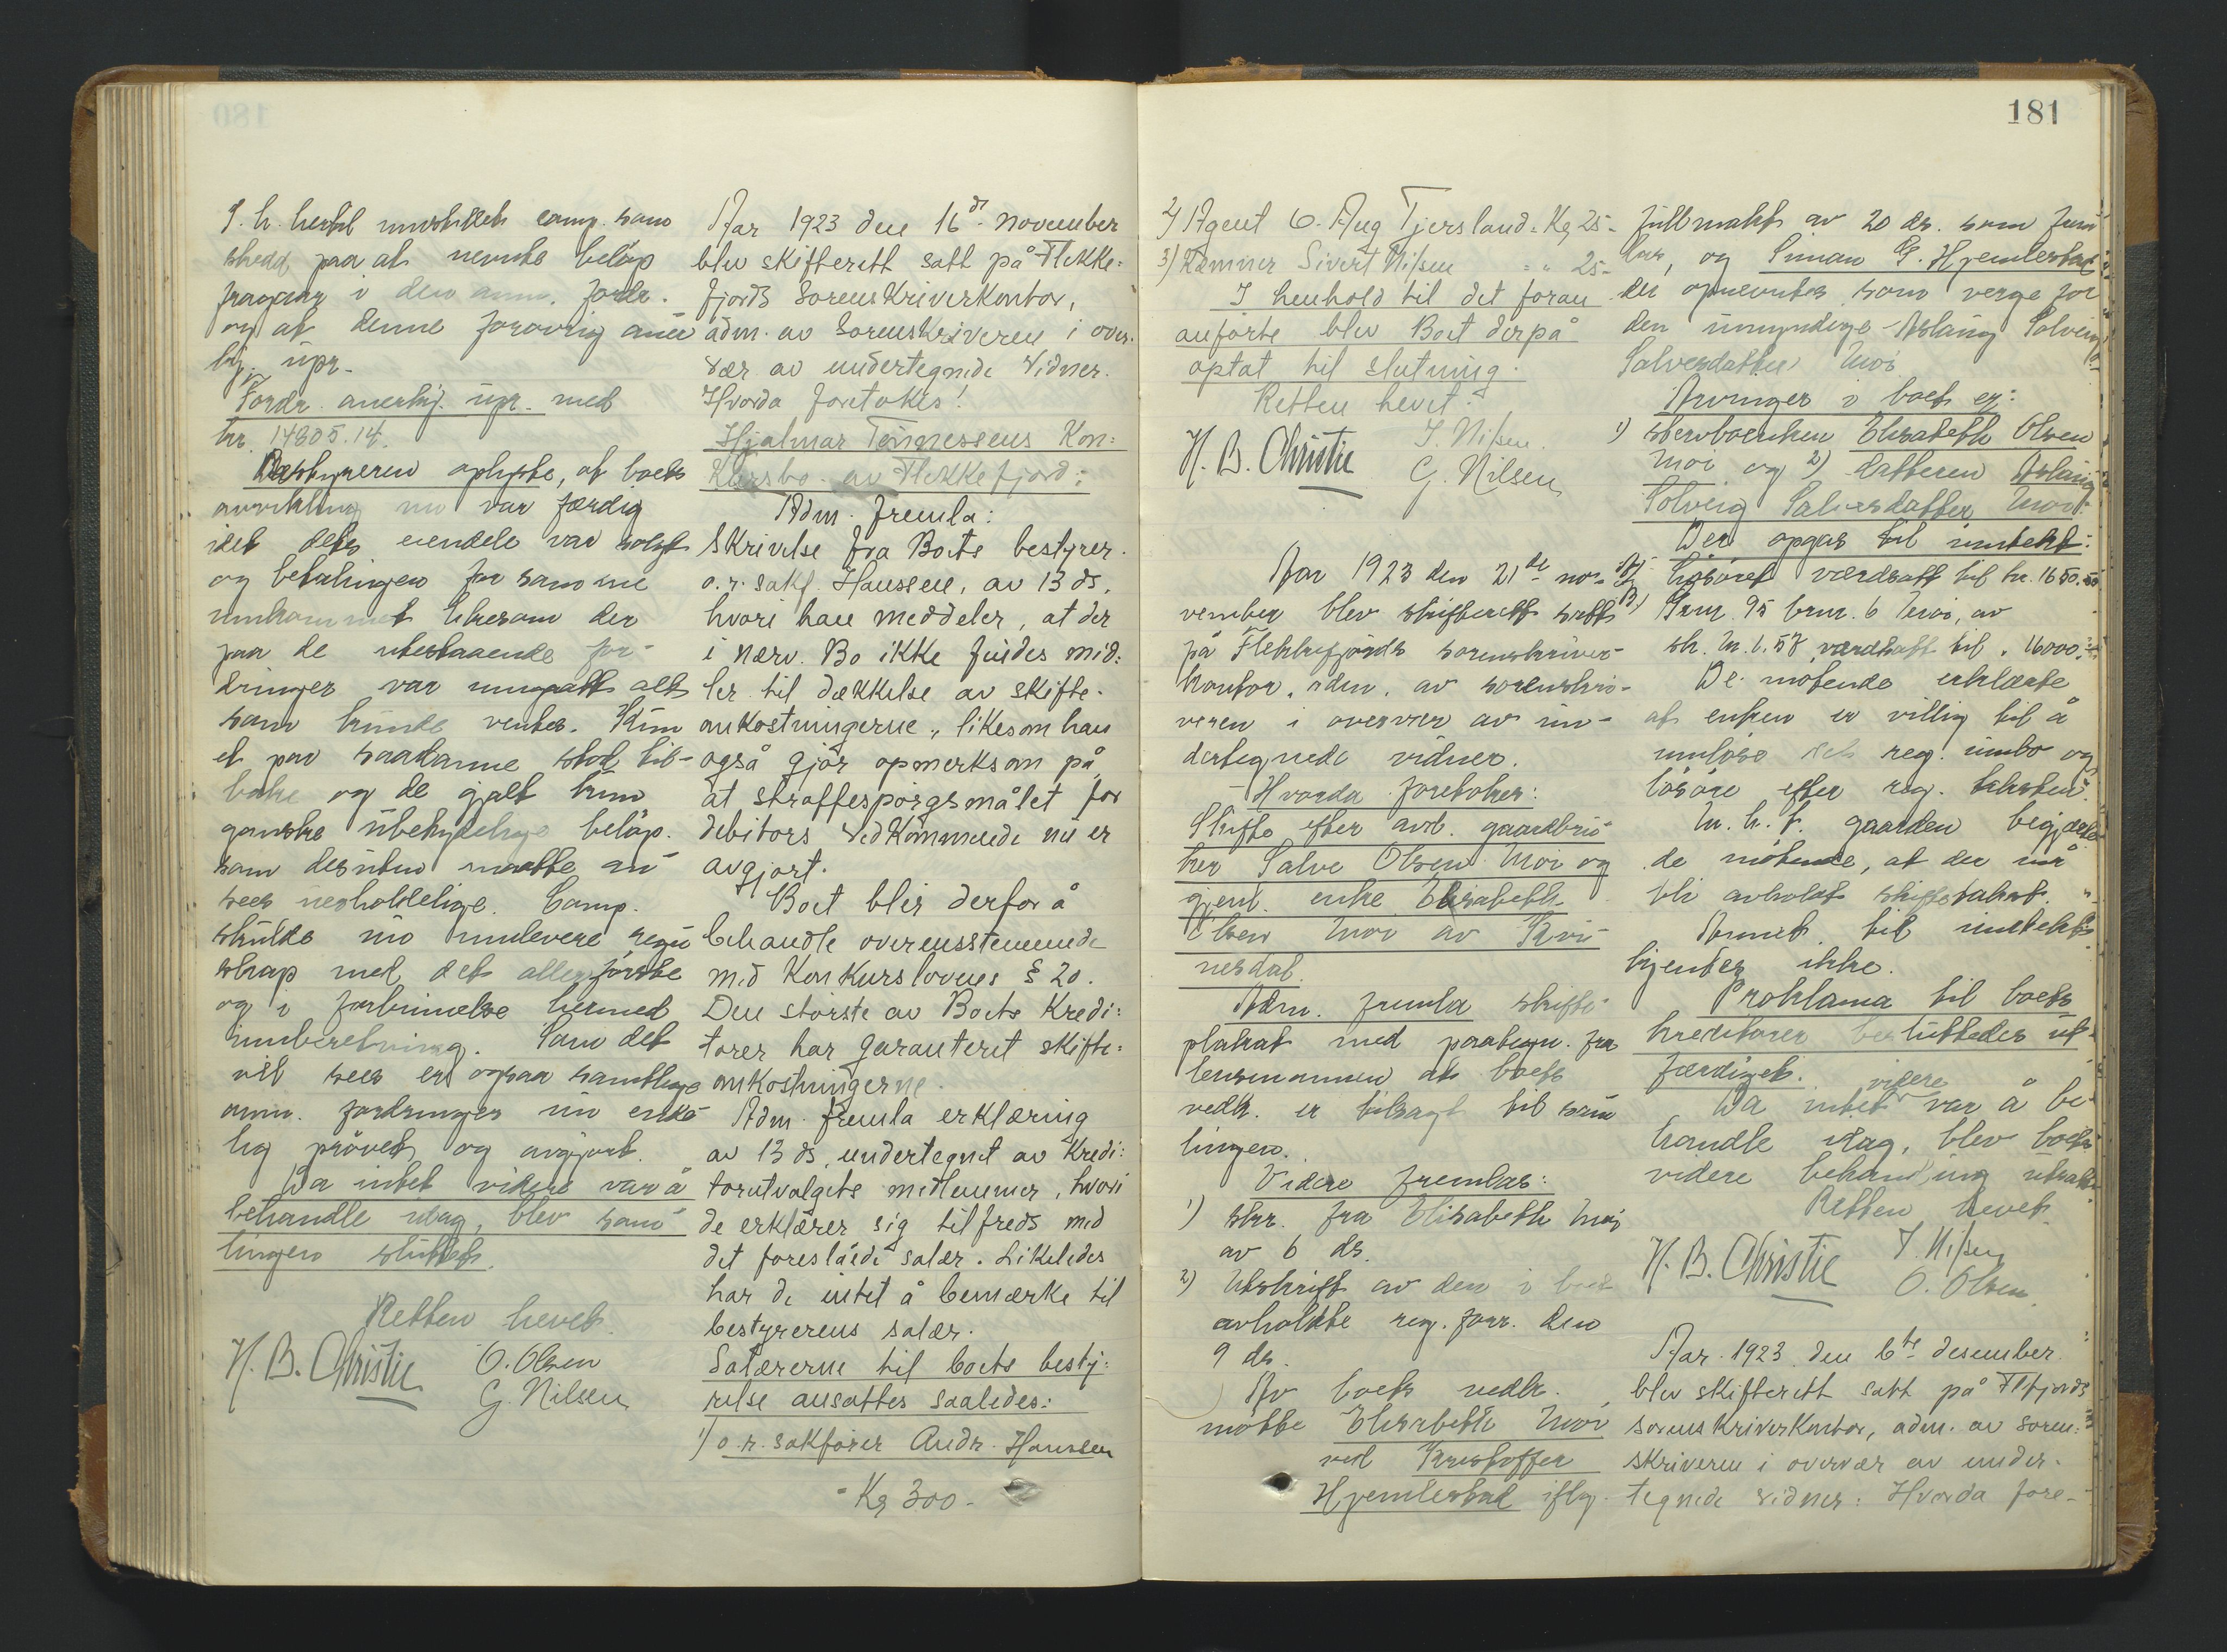 180
I. h. hertil innstilledes comp. som
skedd paa at nevnte beløp
fragaar i den anm. fordr.
og at denne forøvrig aner
kj. upr.
Fordr. anerkj. upr. med
kr. 14805.14.
Bestyreren oplyste, at boets
avvikling nu var færdig
idet dets eiendele var solgt
og betalingen for samme
innkommet likesom der
paa de utestaaende for-
dringer var inngaatt alt
som kunde ventes. Kun
et par saadanne stod til-
bake og de gjalt kun
ganske ubetydelige beløp.
som desuten maatte an-
sees uerholdelige. Comp.
skulde nu innlevere regn
skap med det aller første
og i forbindelse hermed
innberetning. Som det
vil sees er ogsaa samtlige
anm. fordringer nu ende
lig prøvet og avgjort.
Da intet videre var å
behandle idag, blev sam-
lingen sluttet.
Retten hevet.
H. B. Christie O. Olsen
G. Nilsen
Aar 1923 den 16de november
blev skifterett satt på Flekke=
fjords Sorenskriverkontor,
adm. av Sorenskriveren i over-
vær av undertegnede Vidner.
Hvorda foretokes!
Hjalmar Tønnessens Kon=
kursbo av Flekkefjord:
Adm. fremla:
Skrivelse fra Boets bestyrer
o.r. sakf. Hanssen, av 13 ds,
hvori han meddeler, at der
i nærv. Bo ikke findes mid=
ler til dækkelse av skifte-
omkostningerne, likesom han
også gjør opmerksom på
at straffespørgsmålet for
debitors Vedkommende nu er
avgjort.
Boet blir derfor å
behandle overensstemmende
med Konkurslovens § 20.
Den største av Boets Kredi=
torer har garanteret skifte=
omkostningerne.
Adm. fremla erklæring
av 13 ds, undertegnet av Kredi=
torutvalgets medlemmer, hvori
de erklærer sig tilfreds med
det foreslåede salær. Likeledes
har de intet å bemærke til
bestyrerens salær.
Salærerne til boets besty=
relse ansattes saaledes:
1) o.r. sakfører Andr. Hanssen
Kr 300-
181
2) Agent O. Aug Tjersland = Kr 25-
3) Kæmner Sivert Nilsen " " 25-
I henhold til det foran
anførte blev Boet derpå
optat til slutning.
Retten hevet.
H. B. Christie S. Nilsen
G. Nilsen
Aar 1923 den 21de no-
vember blev skifterett satt
på Flekkefjords sorenskriver-
kontor, adm. av sorenskri-
veren i overvær av un-
dertegnede vidner.
Hvorda foretokes:
Skifte efter avd. gaardbru-
ker Salve Olsen Moi og
gjenl. enke Elisabeth
Olsen Moi av Kvi-
nesdal.
Adm. fremla skifte-
plakat med paategn. fra
lensmannen at boets
vedk. er tilsagt til sam
lingen.
Videre fremlas:
1) skr. fra Elisabeth Moi
av 6 ds.
2) Utskrift av den i boet
avholdte reg. forr. den
9 ds.
Av boets vedk.
møtte Elisabeth Moi
ved Kristoffer
Hjemlestad iflg.
fullmakt av 20 ds. som frem
las, og Simon G. Hjemlestad
der opnevntes som verge for
den umyndige Aslaug Solveig
Salvesdatter Moi
Arvinger i boet er:
1) stervboenken Elisabeth Olsen
Moi og 2) datteren Aslaug
Solveig Salvesdatter Moi.
Der opgas til inntekt:
A) Løsøret værdsatt til kr. 1650.50
B) Grnr. 95 brnr. 6 Moi, av
sk. m. 1.58 værdsatt til " 16000.-
De møtende erklærte
at enken er villig til å
innløse det reg. innbo og
løsøre efter reg. taksten.
M. h. t. gaarden begjærte
de møtende, at der må
bli avholdt skiftetakst.
Annet til inntekt
kjentes ikke.
Proklama til boets
kreditorer besluttedes ut-
færdiget.
Da intet videre var å be-
handle idag, blev boets
videre behandling utsatt
Retten hevet.
H. B. Christie S. Nilsen
O. Olsen
Aar 1923 den 6te desember
blev skifterett satt på Flfjords
sorenskriverkontor, adm. av soren=
skriveren i overvær av under-
tegnede vidner: Hvorda fore-